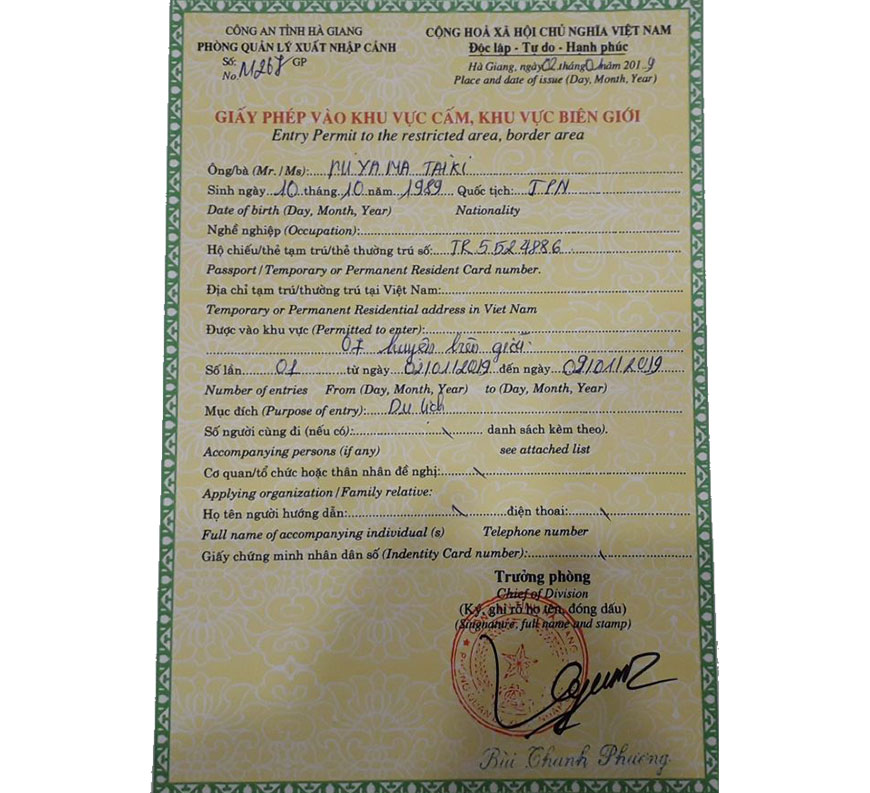 CÔNG AN TỈNH HÀ GIANG
PHÒNG QUẢN LÝ XUẤT NHẬP CẢNH
Số:
No M267 GP
CỘNG HOÀ XÃ HỘI CHỦ NGHĨA VIỆT NAM
Độc lập - Tự do - Hạnh phúc
Hà Giang, ngày 02 tháng 01 năm 2019
Place and date of issue (Day, Month, Year)
GIẤY PHÉP VÀO KHU VỰC CẤM, KHU VỰC BIÊN GIỚI
Entry Permit to the restricted area, border area
Ông/bà (Mr. / Ms): MIYAMA TAIKI
Sinh ngày 10 tháng 10 năm 1989 Quốc tịch: JPN
Date of birth (Day, Month, Year) Nationality
Nghề nghiệp (Occupation):
Hộ chiếu/thẻ tạm trú/thẻ thường trú số: TR5524886
Passport / Temporary or Permanent Resident Card number.
Địa chỉ tạm trú/thường trú tại Việt Nam:
Temporary or Permanent Residential address in Viet Nam
Được vào khu vực (Permitted to enter):
07 huyện biên giới
Số lần 01 từ ngày 02/01/2019 đến ngày 09/01/2019
Number of entries From (Day, Month, Year) to (Day, Month, Year)
Mục đích (Purpose of entry): Du lịch
Số người cùng đi (nếu có): \ danh sách kèm theo).
Accompanying persons (if any) see attached list
Cơ quan/tổ chức hoặc thân nhân đề nghị: \
Applying organization / Family relative:
Họ tên người hướng dẫn: \ điện thoại: \
Full name of accompanying individual (s) Telephone number
Giấy chứng minh nhân dân số (Indentity Card number): \
Trưởng phòng
Chief of Division
(Ký, ghi rõ họ tên, đóng dấu)
(Singnature, full name and stamp)
Bùi Chanh Phương